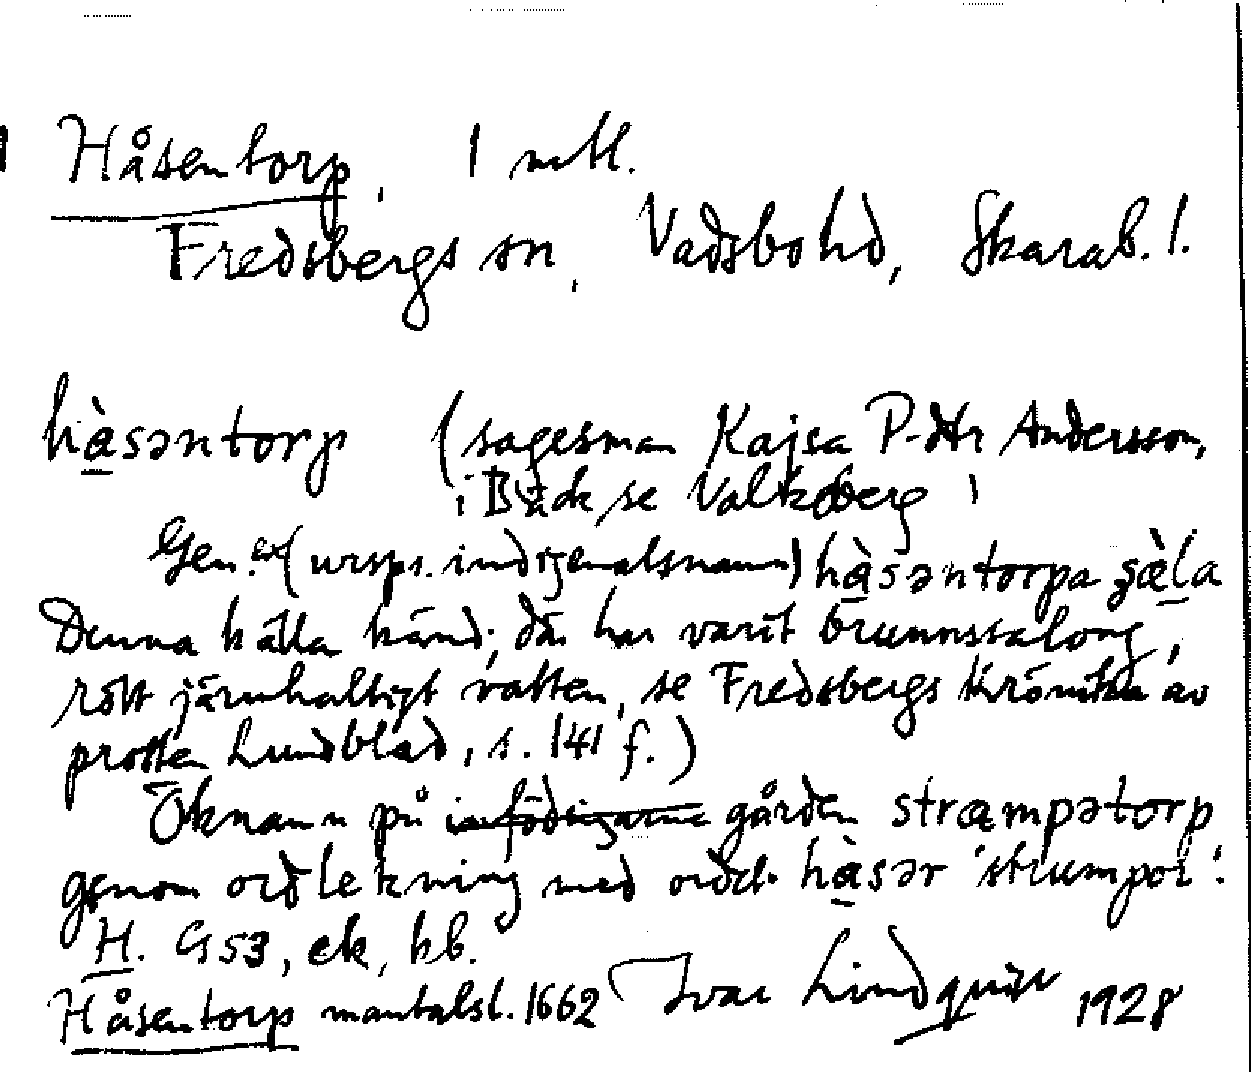 Håsentorp, 1 mtl.
Fredsbergs sn, Vadsbo hd, Skarab. l.
hàsəntorp (sagesman Kajsa P-Hr Andersson,
i Bäck, se Valkeberg)
Gen. (urspr. indigenatsnamn) hàsəntorpa
Denna källa känd; där har varit brunnssalong,
rött järnhaltigt vatten, se Fredsbergs Krönika av
prosten Lundblad, s. 141 f.)
Öknamn på infödingarne gården stræmpətorp
genom ordlekning med ordet hàsər 'strumpor'.
H. G53, ek, kb.
Håsentorp mantalsl. 1662 Ivar Lindquist 1928